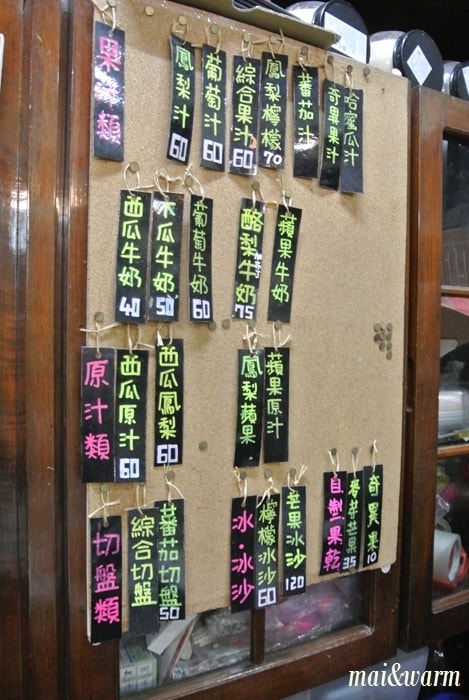 果汁類
鳳梨汁 60
葡萄汁 60
綜合果汁 60
鳳梨檸檬 70
蕃茄汁
奇異果汁
哈蜜瓜汁
西瓜牛奶 40
木瓜牛奶 50
葡萄牛奶 60
酪梨牛奶 75
蘋果牛奶
原汁類
西瓜原汁 60
西瓜鳳梨 60
鳳梨蘋果
蘋果原汁
切盤類
綜合切盤
蕃茄切盤 50
冰.冰沙
檸檬冰沙 60
芒果冰沙 120
自製果乾
芒果 35
奇異果 10
mai&warm